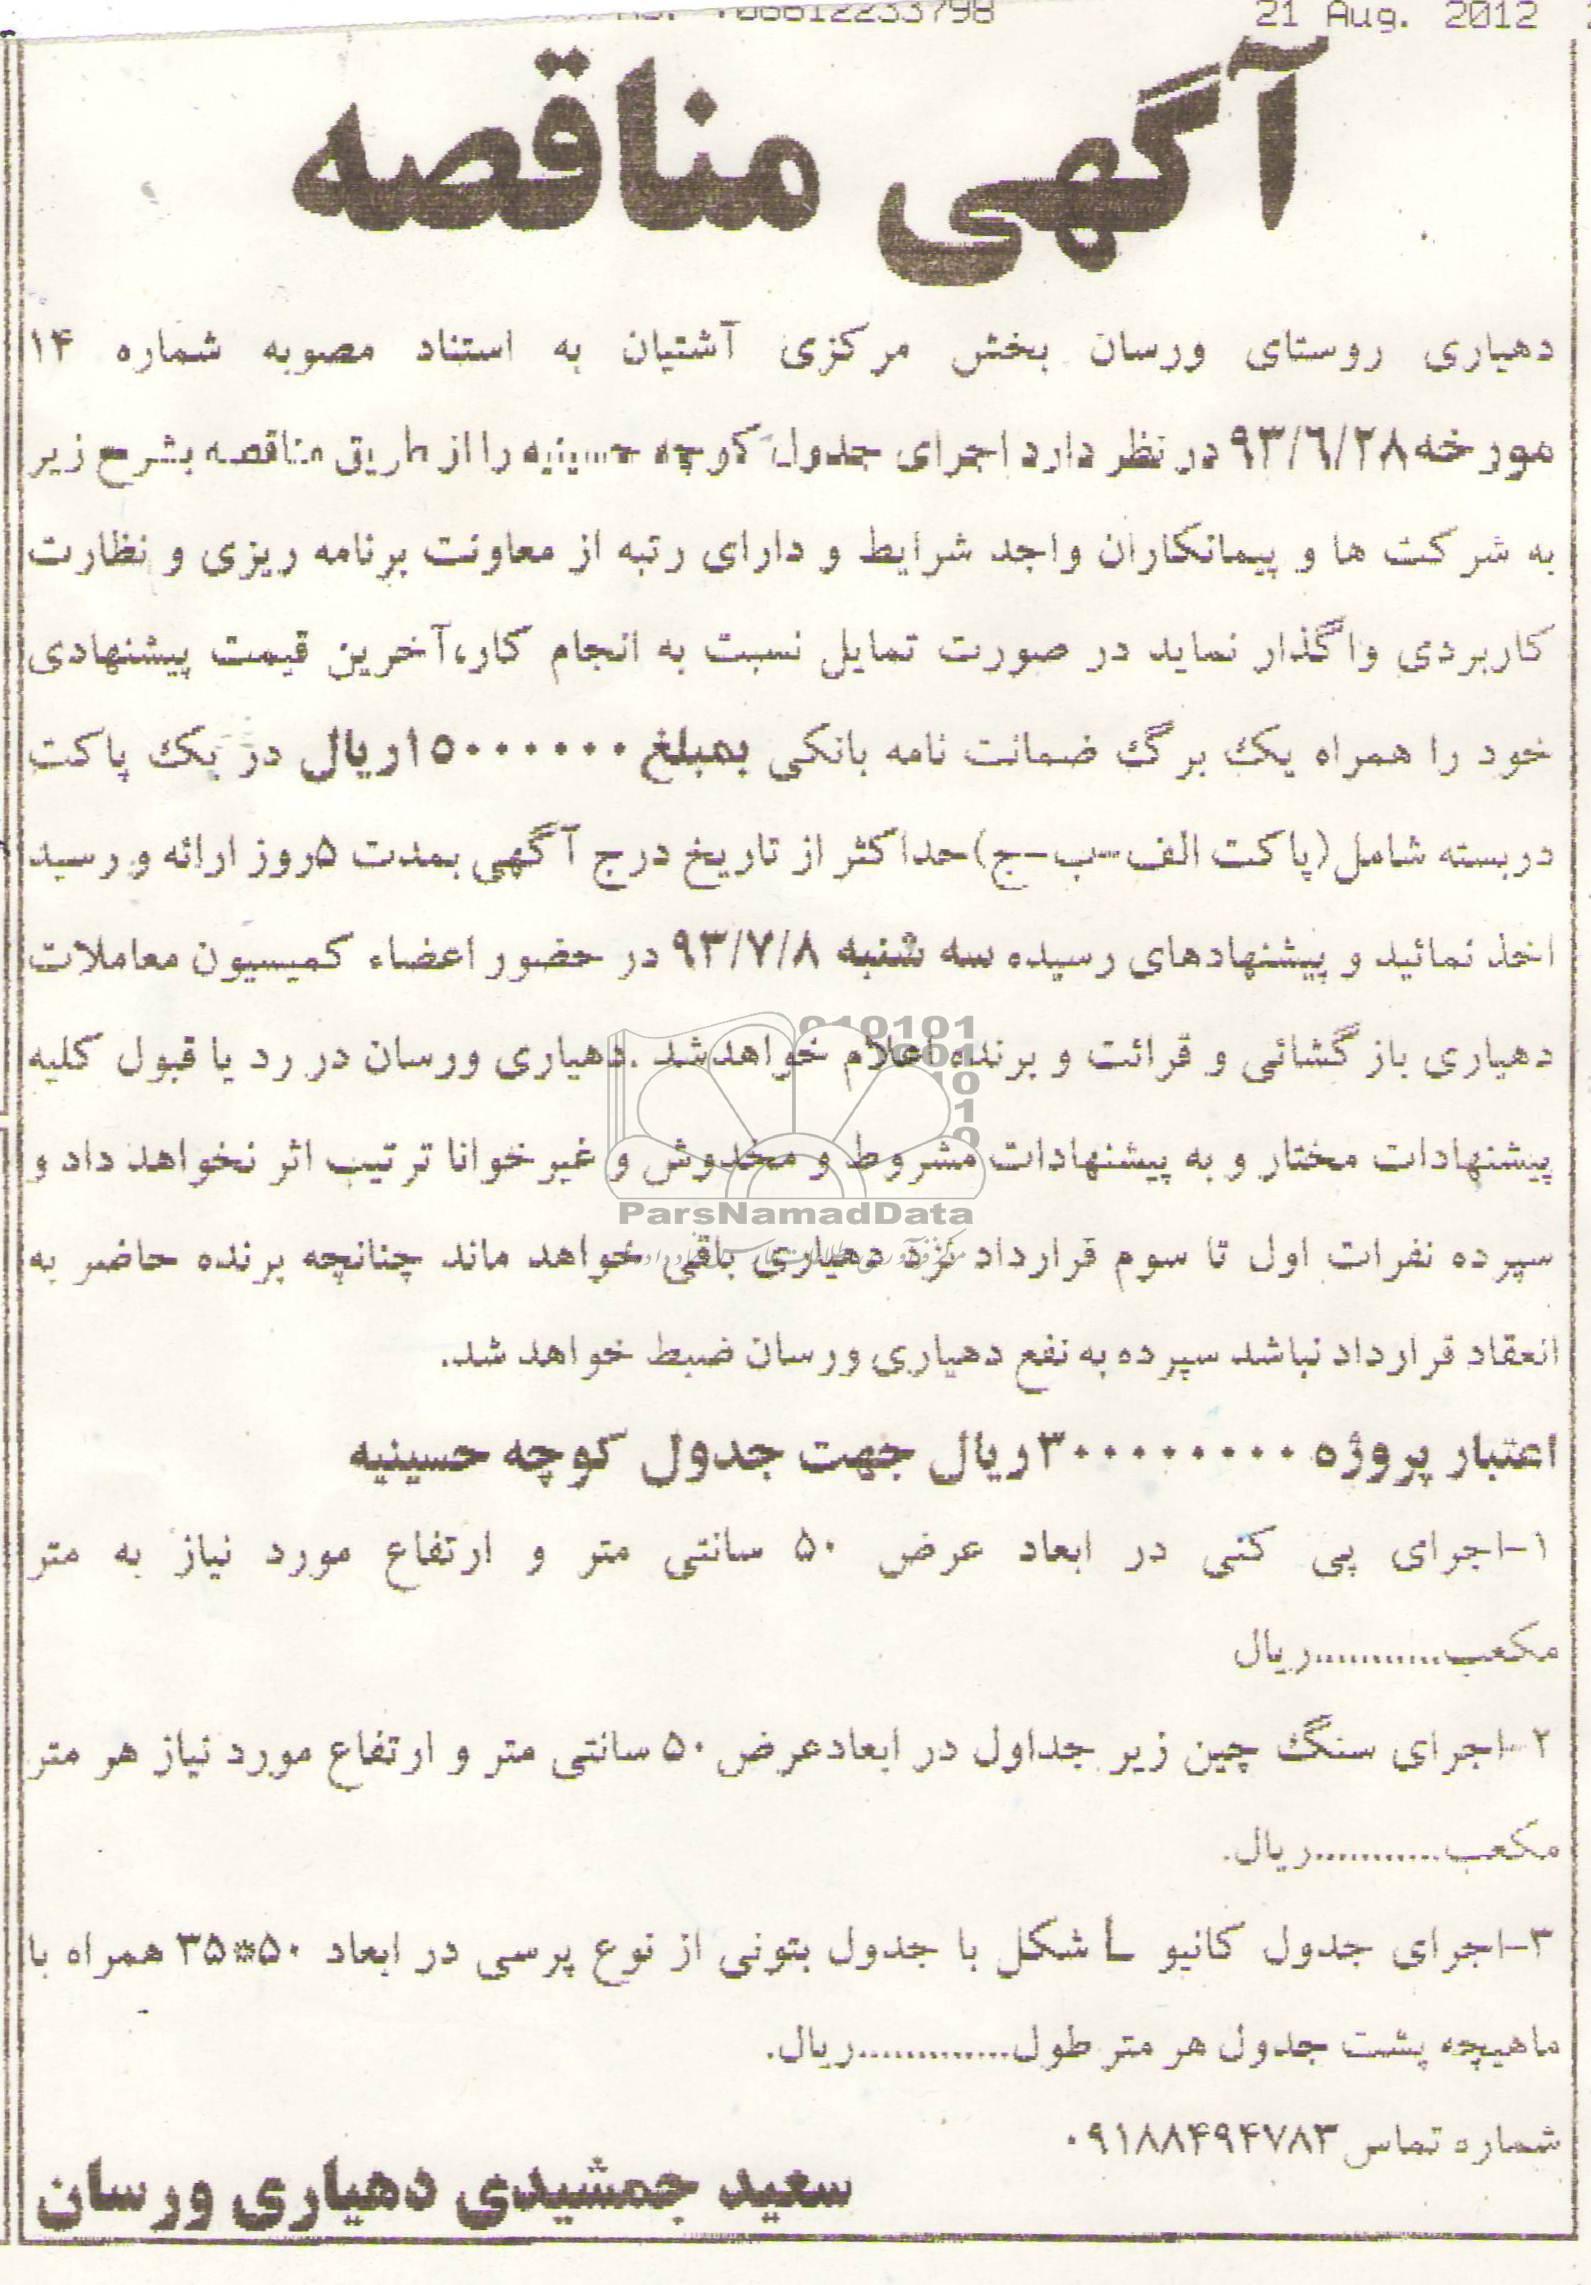 21 Aug. 2012
آگهی مناقصه
دهیاری روستای ورسان بخش مرکزی آشتیان به استناد مصوبه شماره ۱۴
مورخه ۹۳/۶/۲۸ در نظر دارد اجرای جدول کوچه حسینیه را از طریق مناقصه بشرح زیر
به شرکت ها و پیمانکاران واجد شرایط و دارای رتبه از معاونت برنامه ریزی و نظارت
کاربردی واگذار نماید در صورت تمایل نسبت به انجام کار،آخرین قیمت پیشنهادی
خود را همراه یک برگ ضمانت نامه بانکی بمبلغ ۱۵۰۰۰۰۰۰ریال در یک پاکت
دربسته شامل(پاکت الف-ب-ج)حداکثر از تاریخ درج آگهی بمدت ۵روز ارائه و رسید
اخذ نمائید و پیشنهادهای رسیده سه شنبه ۹۳/۷/۸ در حضور اعضاء کمیسیون معاملات
دهیاری بازگشائی و قرائت و برنده اعلام خواهدشد .دهیاری ورسان در رد یا قبول کلیه
پیشنهادات مختار و به پیشنهادات مشروط و مخدوش و غیرخوانا ترتیب اثر نخواهد داد و
سپرده نفرات اول تا سوم قرارداد نزد دهیاری باقی خواهد ماند چنانچه برنده حاضر به
انعقاد قرارداد نباشد سپرده به نفع دهیاری ورسان ضبط خواهد شد.
اعتبار پروژه ۳۰۰۰۰۰۰۰۰ریال جهت جدول کوچه حسینیه
۱-اجرای پی کنی در ابعاد عرض ۵۰ سانتی متر و ارتفاع مورد نیاز به متر
مکعب............ریال
۲-اجرای سنگ چین زیر جداول در ابعادعرض ۵۰ سانتی متر و ارتفاع مورد نیاز هر متر
مکعب............ریال.
۳-اجرای جدول کانیو L شکل با جدول بتونی از نوع پرسی در ابعاد ۵۰*۳۵ همراه با
ماهیچه پشت جدول هر متر طول..............ریال.
شماره تماس ۰۹۱۸۸۴۹۴۷۸۳
سعید جمشیدی دهیاری ورسان
ParsNamadData